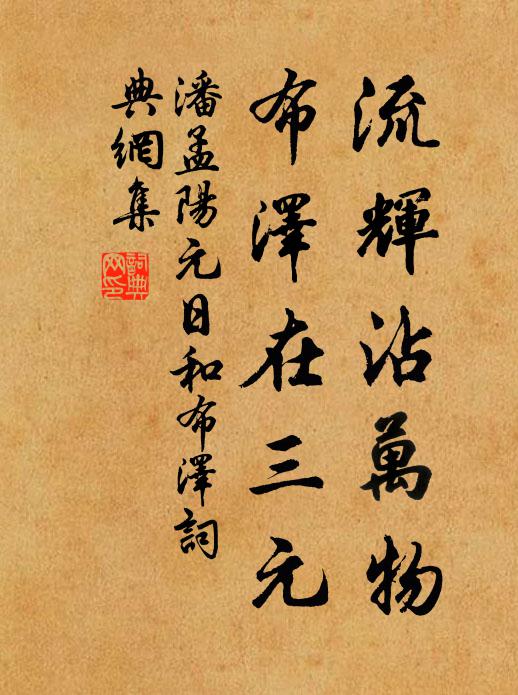 流輝沾萬物
布澤在三元
潘孟陽元日和布澤詞
典網集
詞典
网印